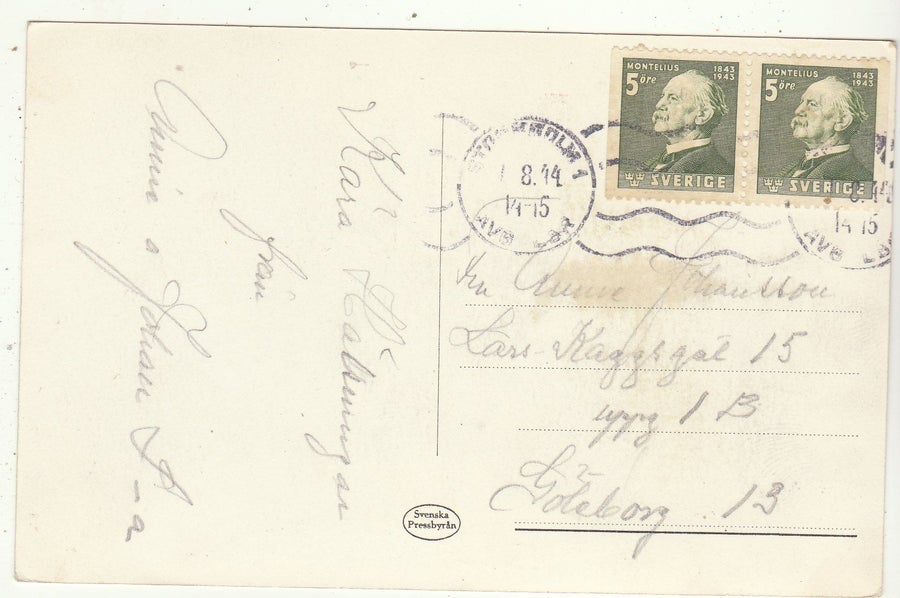 Kära Hälsningar
från
Annie a Johan A-a
MONTELIUS 1843 1943
5 öre
SVERIGE
MONTELIUS 1843 1943
5 öre
SVERIGE
STOCKHOLM 1
1 8.44
14-15
AVG LBR
14-15
AVG LBR
Fru Annie Johansson
Lars-Kaggsgat 15
uppg 1 B
Göteborg . 13
Svenska
Pressbyrån